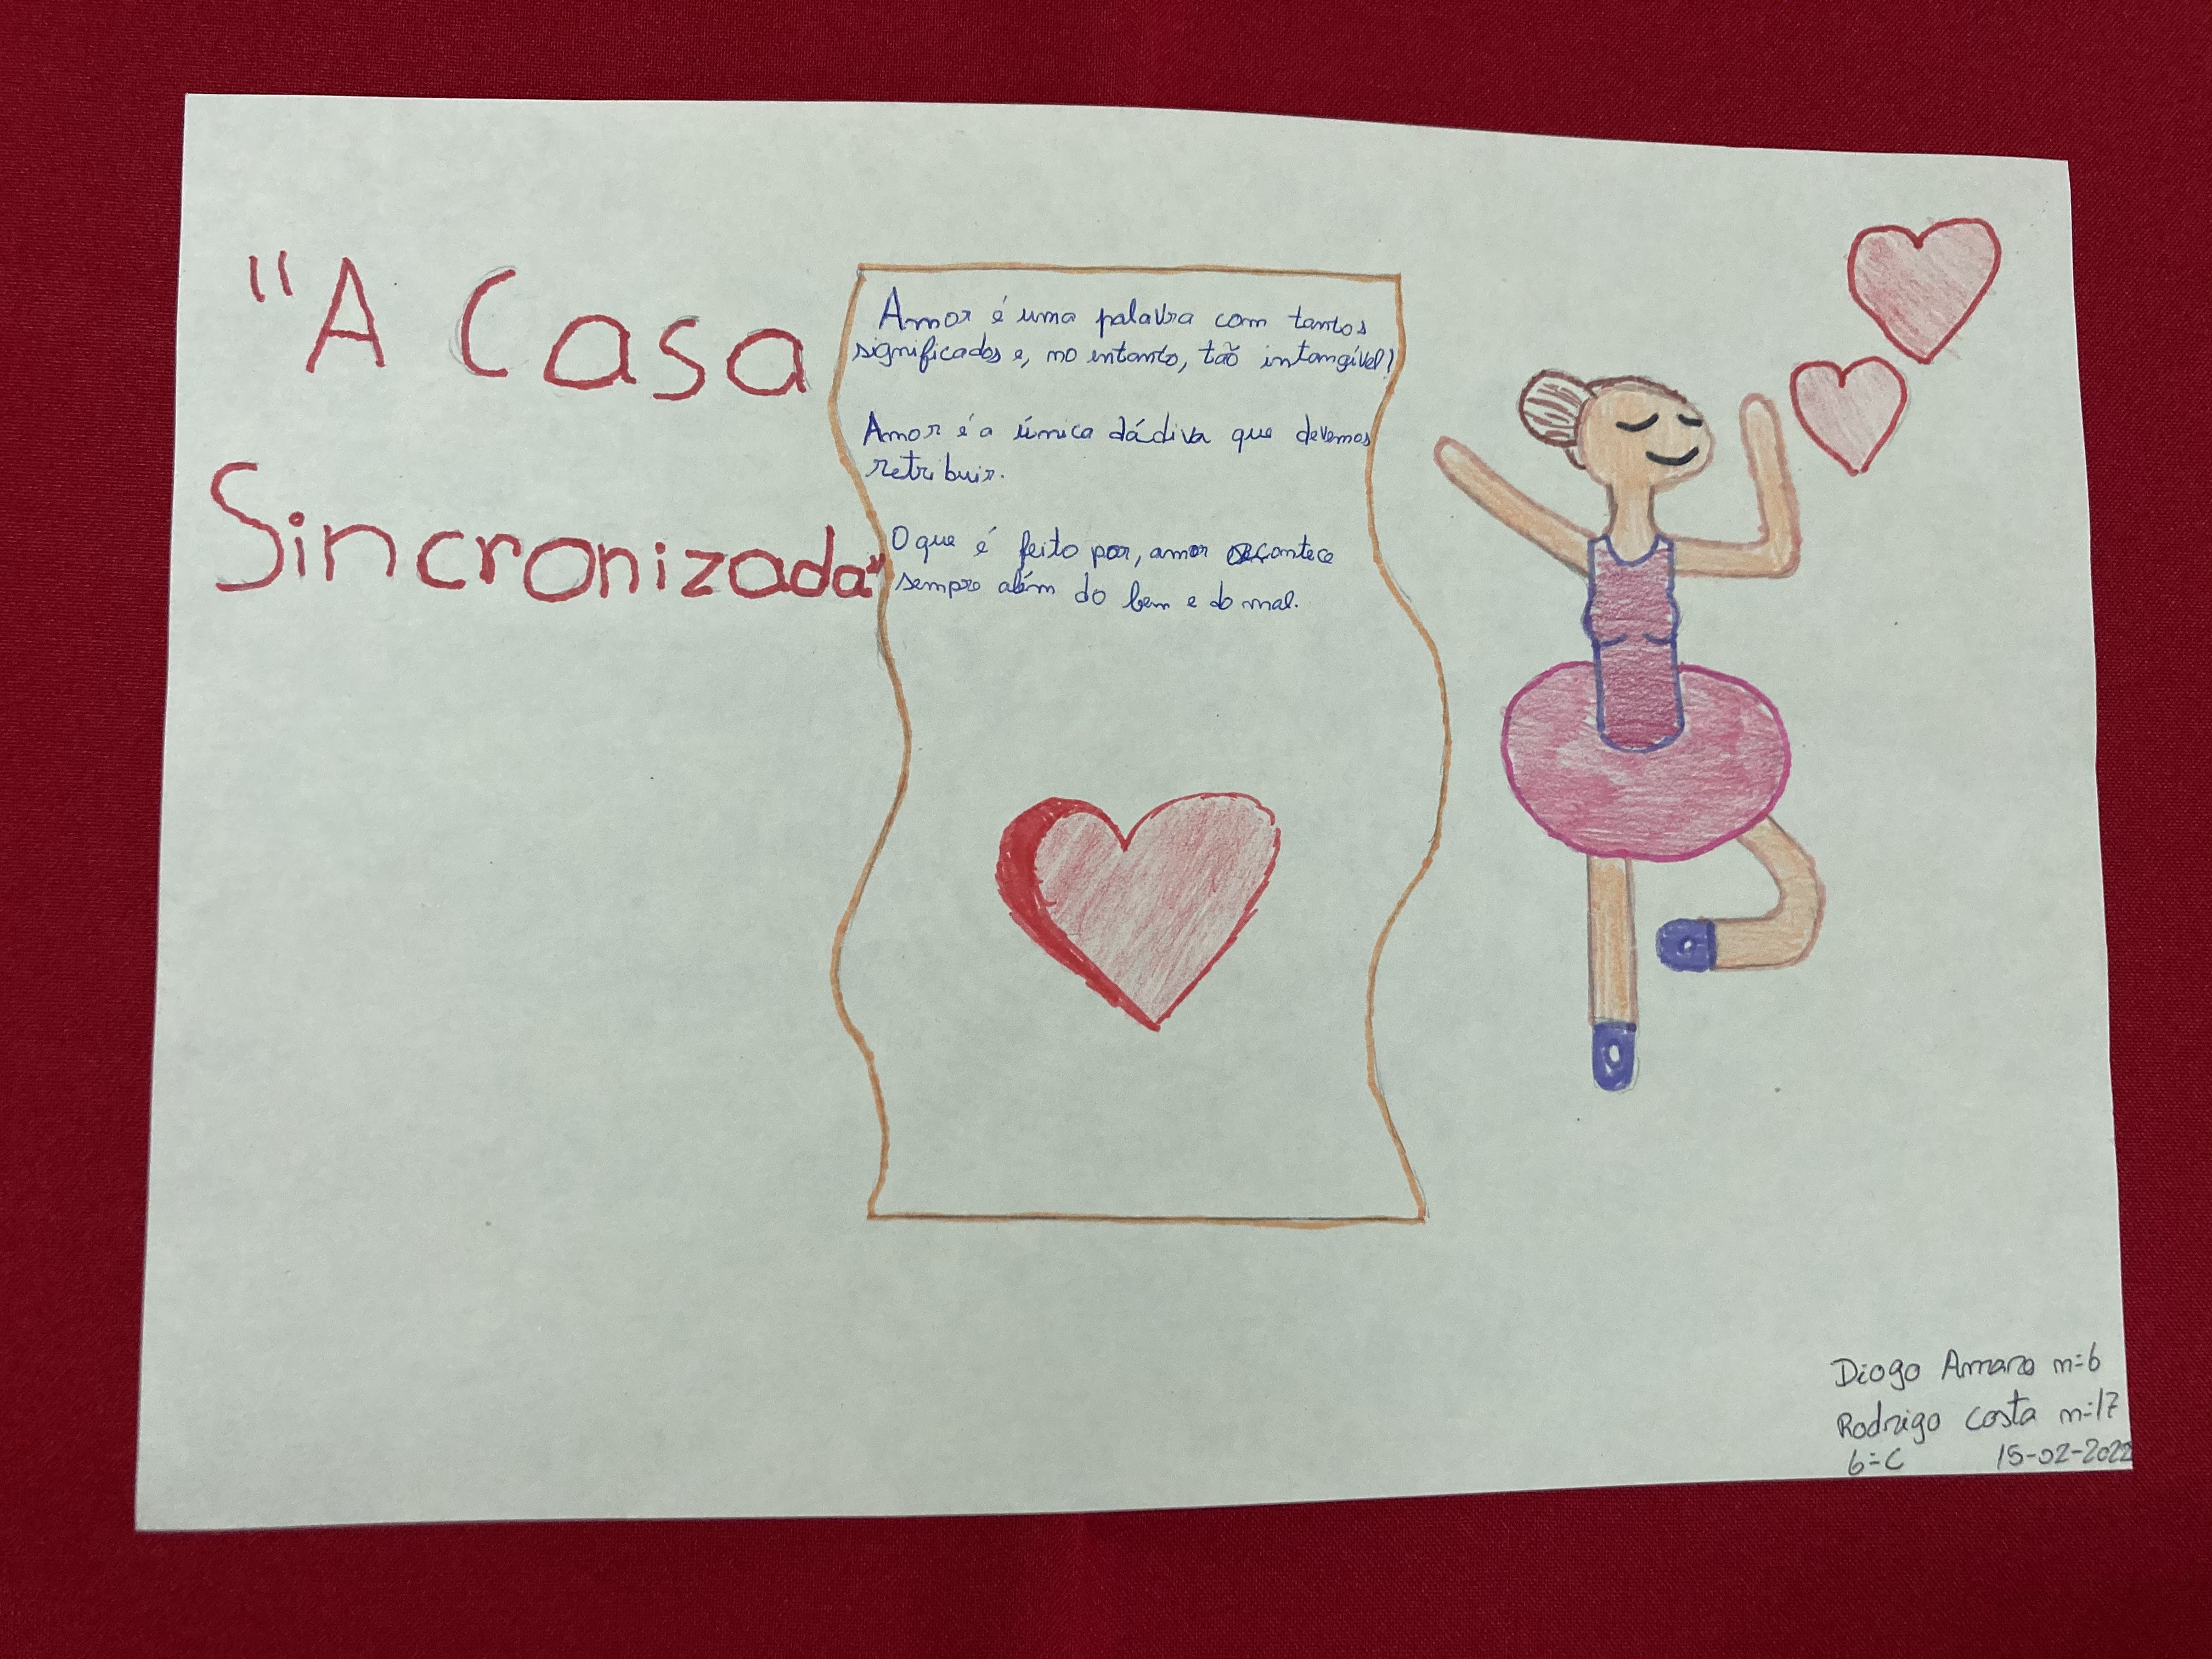 "A Casa
Sincronizada"
Amor é uma palavra com tantos
significados e, no entanto, tão intangível!
Amor é a única dádiva que devemos
retribuir.
O que é feito por, amor acontece
sempre além do bem e do mal.
Diogo Amaro n=6
Rodrigo Costa n=17
6=C 15-02-2022